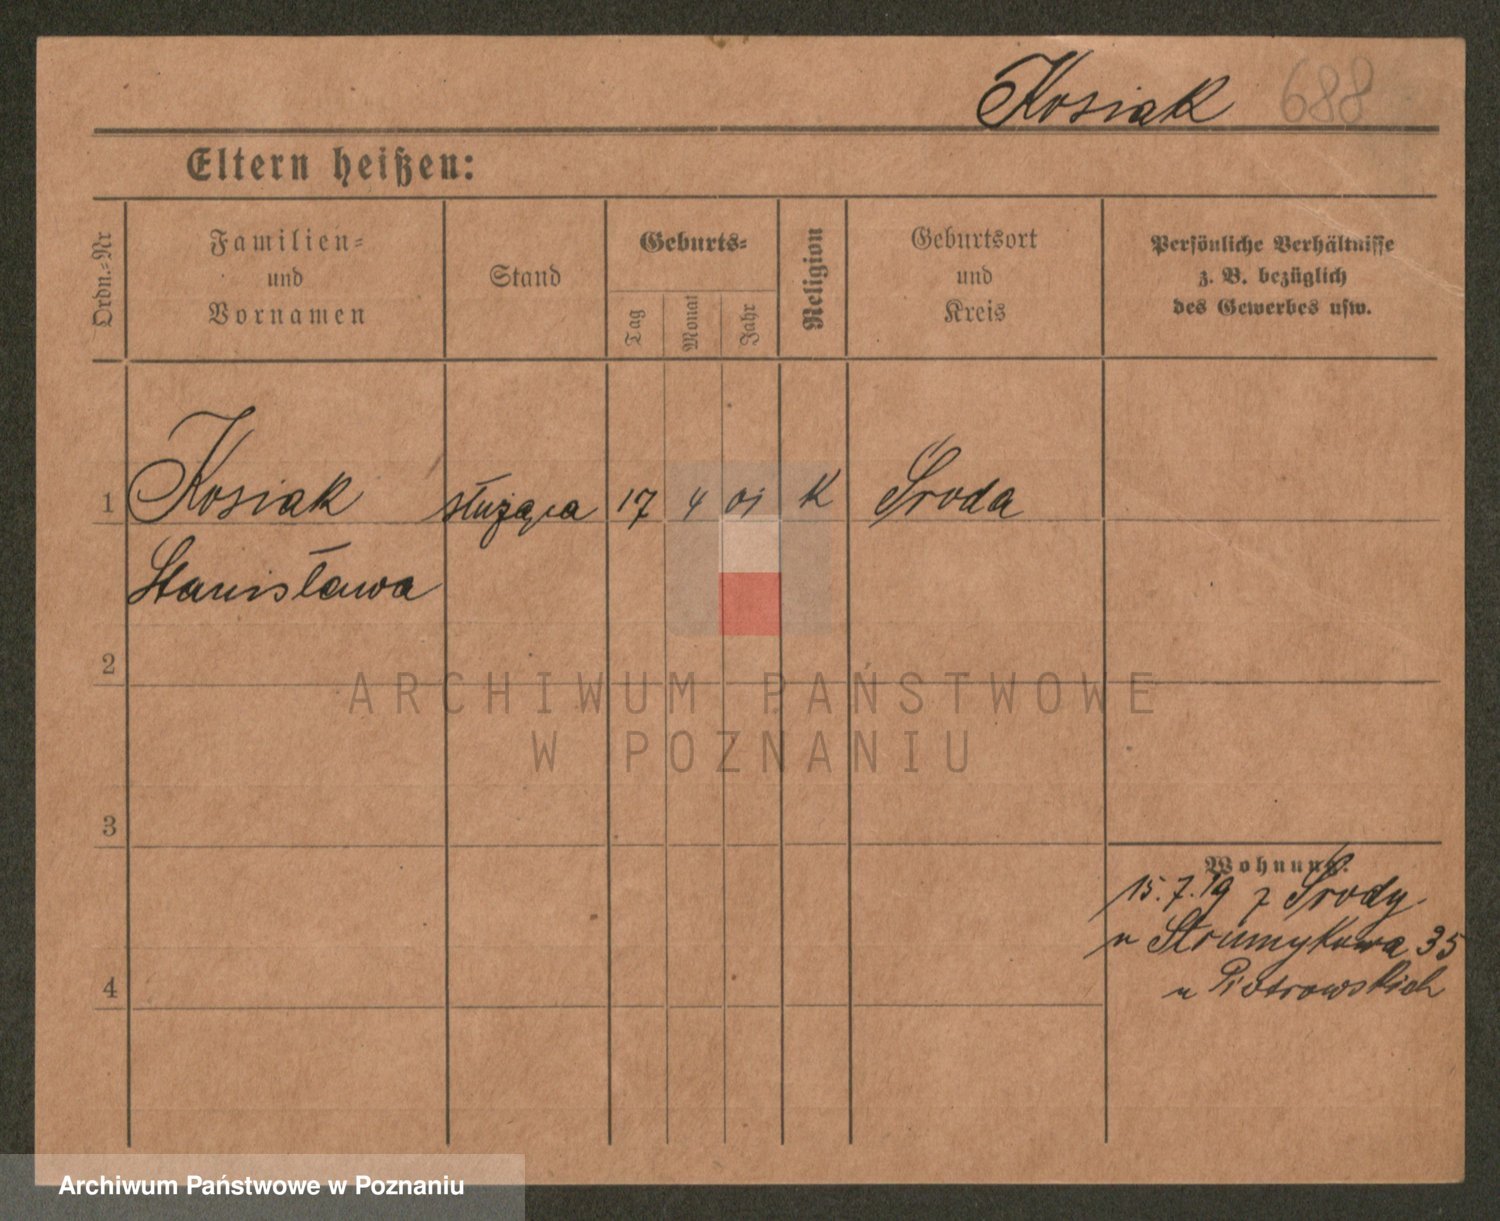 Kosiak 688
Eltern heißen:
Ordn.=Nr
Familien=
und
Vornamen
Stand
Geburts=
Tag
Monat
Jahr
Religion
Geburtsort
und
Kreis
Persönliche Verhältnisse
z. B. bezüglich
des Gewerbes usw.
1 Kosiak służąca 17 4 01 K Środa
Stanisława
2
ARCHIWUM PAŃSTWOWE
W POZNANIU
3
Wohnung:
15.7.19 z Środy
u Strumykowa 35
u Piotrowskich
4
Archiwum Państwowe w Poznaniu